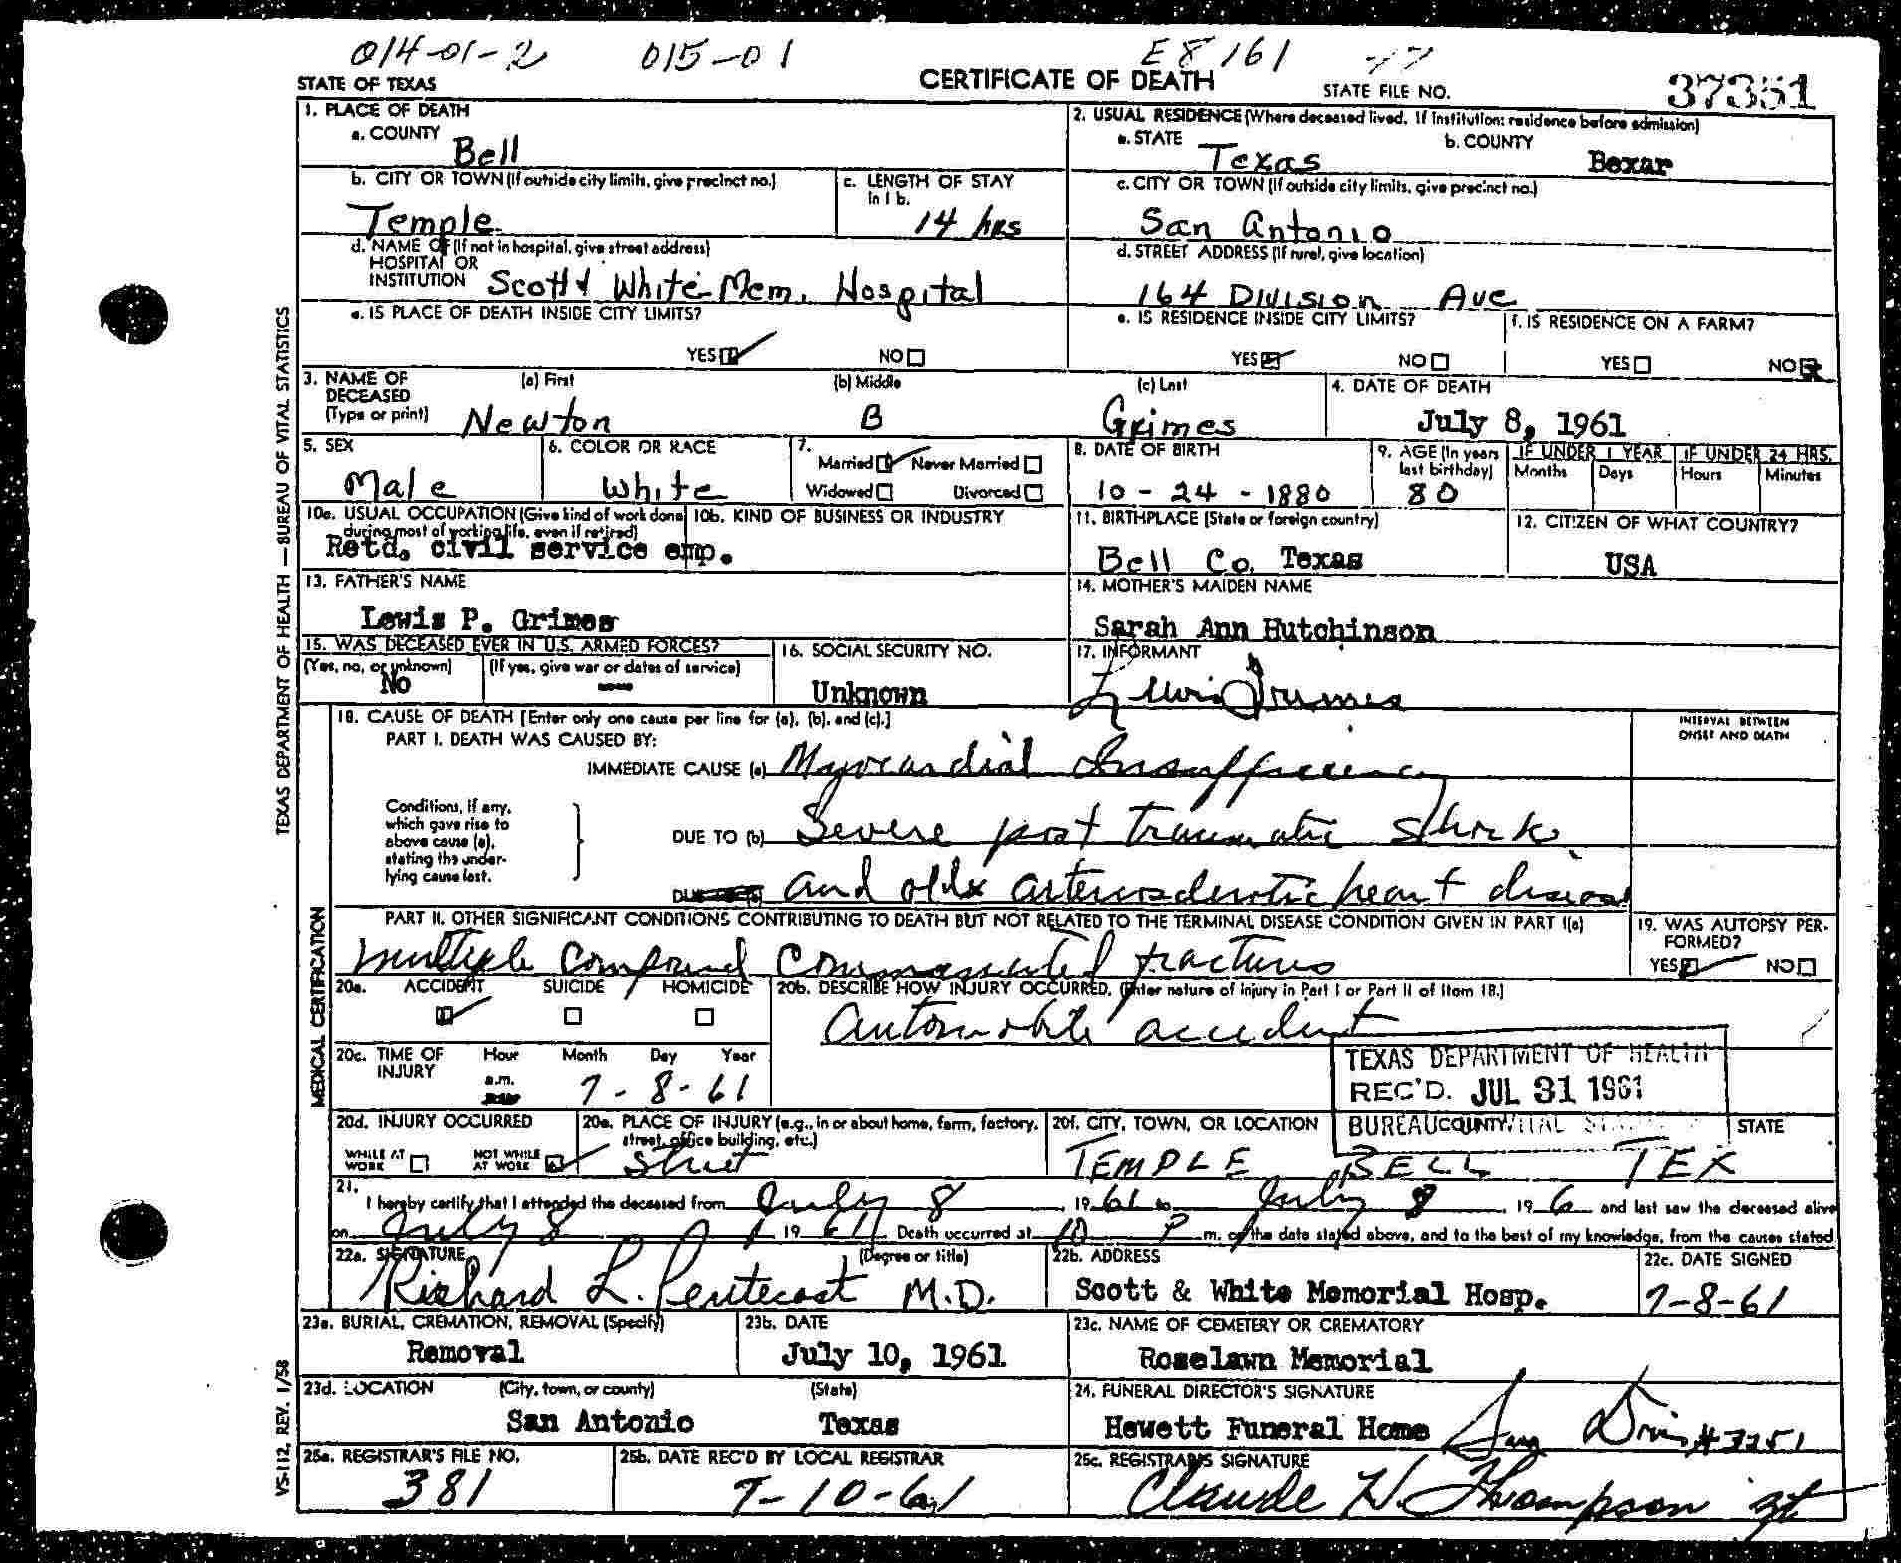 014-01-2 015-01 E8161 77
STATE OF TEXAS CERTIFICATE OF DEATH STATE FILE NO. 37351
1. PLACE OF DEATH
a. COUNTY Bell
2. USUAL RESIDENCE (Where deceased lived. If institution: residence before admission)
a. STATE Texas b. COUNTY Bexar
b. CITY OR TOWN (If outside city limits, give precinct no.) Temple
c. LENGTH OF STAY in 1 b. 14 hrs
c. CITY OR TOWN (If outside city limits, give precinct no.) San Antonio
d. NAME OF (If not in hospital, give street address)
HOSPITAL OR
INSTITUTION Scott & White Mem. Hospital
d. STREET ADDRESS (If rural, give location)
164 Division Ave
e. IS PLACE OF DEATH INSIDE CITY LIMITS?
YES NO
e. IS RESIDENCE INSIDE CITY LIMITS?
YES NO
f. IS RESIDENCE ON A FARM?
YES NO
3. NAME OF DECEASED (Type or print)
(a) First Newton (b) Middle B (c) Last Grimes
4. DATE OF DEATH
July 8, 1961
5. SEX Male
6. COLOR OR RACE White
7. Married Never Married
Widowed Divorced
8. DATE OF BIRTH 10-24-1880
9. AGE (In years last birthday) 80
IF UNDER 1 YEAR Months Days
IF UNDER 24 HRS. Hours Minutes
10a. USUAL OCCUPATION (Give kind of work done during most of working life, even if retired)
Retd. civil service emp.
10b. KIND OF BUSINESS OR INDUSTRY
11. BIRTHPLACE (State or foreign country)
Bell Co. Texas
12. CITIZEN OF WHAT COUNTRY?
USA
13. FATHER'S NAME
Lewis P. Grimes
14. MOTHER'S MAIDEN NAME
Sarah Ann Hutchinson
15. WAS DECEASED EVER IN U.S. ARMED FORCES?
(Yes, no, or unknown) No (If yes, give war or dates of service)
16. SOCIAL SECURITY NO.
Unknown
17. INFORMANT
Lewis Grimes
18. CAUSE OF DEATH [Enter only one cause per line for (a), (b), and (c).]
INTERVAL BETWEEN ONSET AND DEATH
PART I. DEATH WAS CAUSED BY:
IMMEDIATE CAUSE (a) Myocardial Insufficiency
Conditions, if any, which gave rise to above cause (a), stating the underlying cause last.
DUE TO (b) Severe post traumatic shock
and old arteriosclerotic heart disease
PART II. OTHER SIGNIFICANT CONDITIONS CONTRIBUTING TO DEATH BUT NOT RELATED TO THE TERMINAL DISEASE CONDITION GIVEN IN PART I(a)
multiple compound comminuted fractures
19. WAS AUTOPSY PERFORMED?
YES NO
20a. ACCIDENT SUICIDE HOMICIDE
20b. DESCRIBE HOW INJURY OCCURRED. (Enter nature of injury in Part I or Part II of Item 18.)
Automobile accident
20c. TIME OF INJURY Hour Month Day Year
a.m. 7-8-61
TEXAS DEPARTMENT OF HEALTH
REC'D. JUL 31 1961
BUREAU VITAL
20d. INJURY OCCURRED
WHILE AT WORK NOT WHILE AT WORK
20e. PLACE OF INJURY (e.g., in or about home, farm, factory, street, office building, etc.)
Street
20f. CITY, TOWN, OR LOCATION COUNTY STATE
TEMPLE BELL TEX
21. I hereby certify that I attended the deceased from July 8, 1961 to July 8, 196 and last saw the deceased alive
on July 8 1961. Death occurred at 10 P m. on the date stated above, and to the best of my knowledge, from the causes stated.
22a. SIGNATURE (Degree or title)
Richard L. Pentecost M.D.
22b. ADDRESS
Scott & White Memorial Hosp.
22c. DATE SIGNED
7-8-61
23a. BURIAL, CREMATION, REMOVAL (Specify)
Removal
23b. DATE
July 10, 1961
23c. NAME OF CEMETERY OR CREMATORY
Roselawn Memorial
23d. LOCATION (City, town, or county) (State)
San Antonio Texas
24. FUNERAL DIRECTOR'S SIGNATURE
Hewett Funeral Home #3251
25a. REGISTRAR'S FILE NO.
381
25b. DATE REC'D BY LOCAL REGISTRAR
7-10-61
25c. REGISTRAR'S SIGNATURE
Claude H. Thompson
TEXAS DEPARTMENT OF HEALTH — BUREAU OF VITAL STATISTICS
MEDICAL CERTIFICATION
VS-112, REV. 1/58